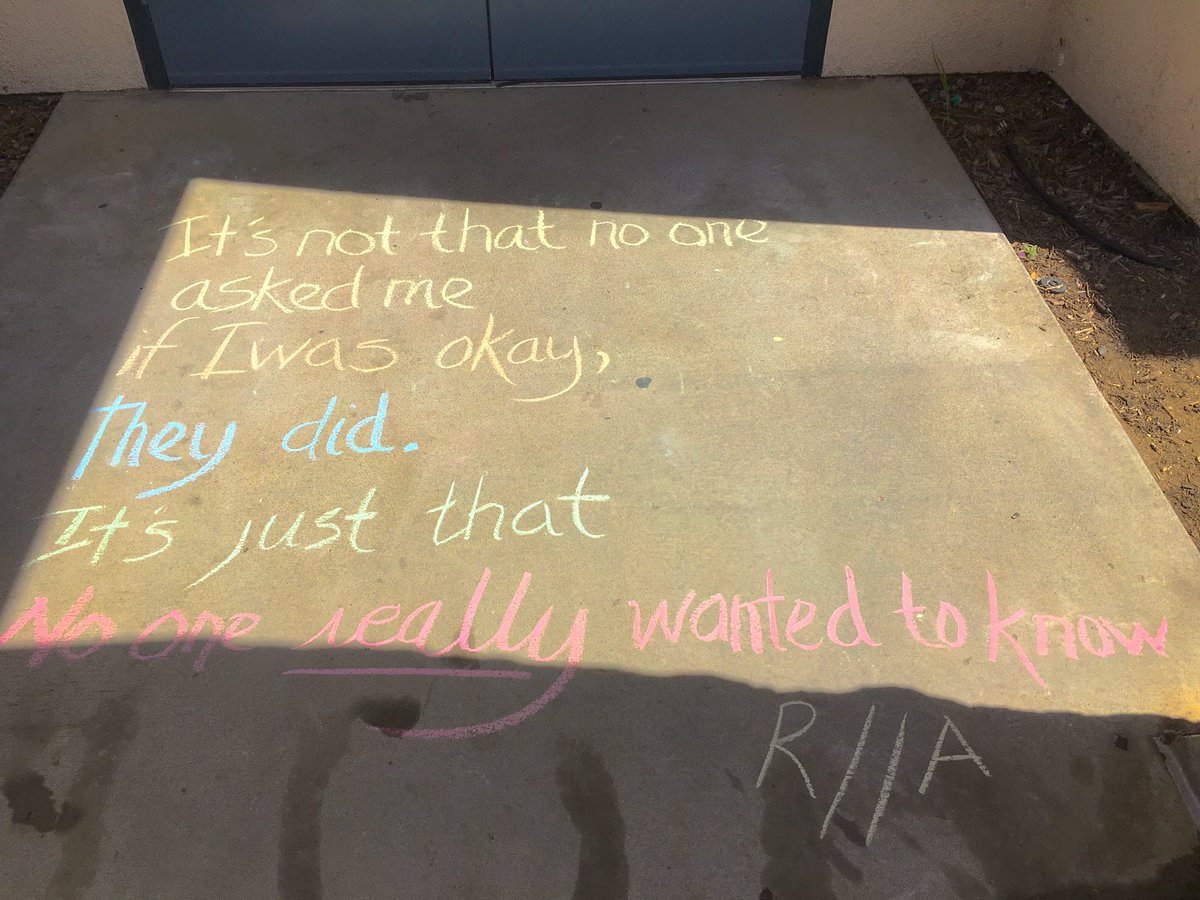 It's not that no one
asked me
if I was okay,
They did.
It's just that
No one really wanted to know
R//A